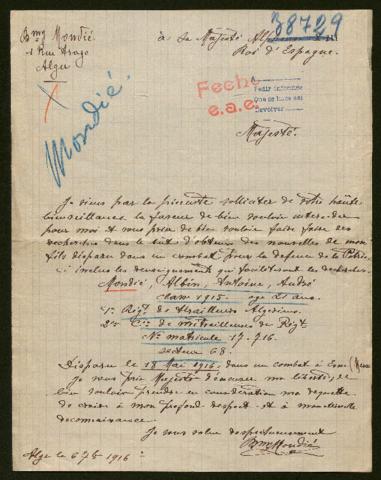 Bmy Mondié
1 Rue Arago
Alger
à Sa Majesté Alphonse XIII
Roi d'Espagne.
38729
Fecho
e.a.e.
Pedir informes
Que se hace así
Devolver
Mondié.
Majesté.
Je viens par la présente solliciter de votre haute
bienveillance la faveur de bien vouloir intercéder
pour moi et vous prie de bien vouloir faire faire des
recherches dans le but d'obtenir des nouvelles de mon
fils disparu dans un combat pour la défense de la Patrie
ci inclus les renseignements qui faciliteront les recherches.
Mondié, Albin, Antoine, André
classe 1915. age 21 ans.
1er Régt de tirailleurs Algériens.
2me Cie de mitrailleuses du Régt
No matricule 17-716.
secteur 68.
Disparu le 18 Mai 1916, dans un combat à
Je vous prie Majesté d'excuser ma liberté, de
bien vouloir prendre en considération ma requette
de croire à mon profond respect et à mon
reconnaissance.
Je vous salue respectueusement
Bmy Mondié
Alger le 6 7b 1916.